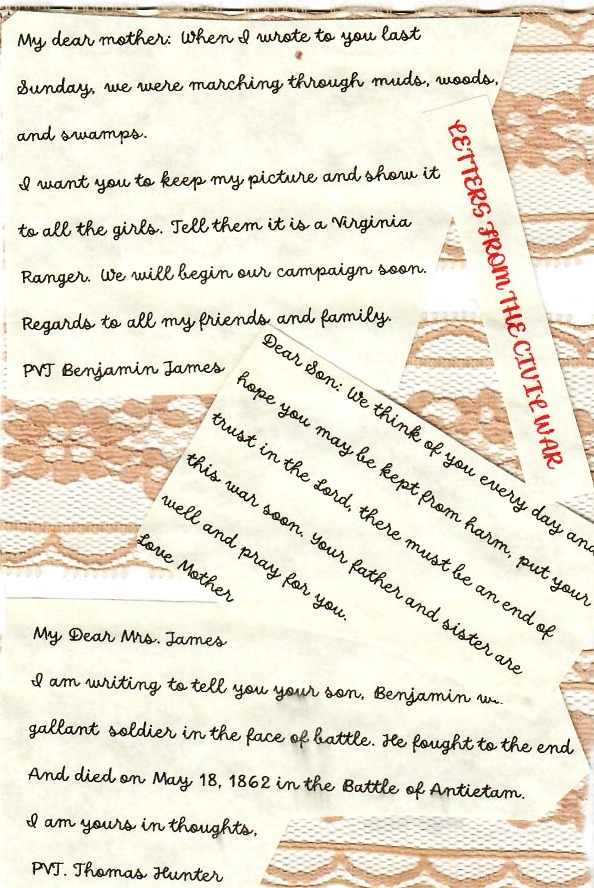 My dear mother: When I wrote to you last
Sunday, we were marching through muds, woods,
and swamps.
I want you to keep my picture and show it
to all the girls. Tell them it is a Virginia
Ranger. We will begin our campaign soon.
Regards to all my friends and family.
PVT Benjamin James
LETTERS FROM THE CIVIL WAR
Dear Son: We think of you every day and
hope you may be kept from harm, put your
trust in the Lord, there must be an end of
this war soon. Your father and sister are
well and pray for you.
Love Mother
My Dear Mrs. James
I am writing to tell you your son, Benjamin
gallant soldier in the face of battle. He fought to the end
And died on May 18, 1862 in the Battle of Antietam.
I am yours in thoughts,
PVT. Thomas Hunter